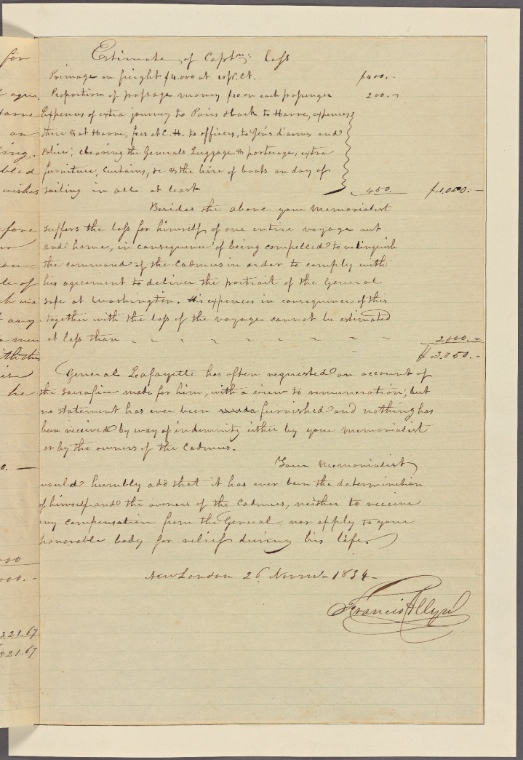 Estimate of Captns loss
Primage on freight $4.000 at 10 pr. Ct. $400.-
Proportion of passage money $10 on each passenger 200.-
Expences of extra journey to Paris & back to Havre, expences
there & at Havre, fees at C. H. to officers, to Gens d'armes and
Police, clearing the Generals Luggage & porterage, extra
furniture, Curtains, &c & the hire of boats on day of
sailing in all at least 450 $1,050.-
Besides the above your Memorialist
suffers the loss for himself of one entire voyage out
and home, in consequence of being compelled to relinquish
the command of the Cadmus in order to comply with
his agreement to deliver the portrait of the General
safe at Washington. His expences in consequence of this
together with the loss of the voyage cannot be estimated
at less than - - - - - - - -
$
General Lafayette has often requested an account of
the sacrifices made for him, with a view to remuneration, but
no statement has ever been furnished and nothing has
been received by way of indemnity either by your memorialist
or by the owners of the Cadmus.
Your Memorialist
would humbly add that it has ever been the determination
of himself and the owners of the Cadmus, neither to receive
any compensation from the General nor apply to your
honorable body for relief during his life.
New London 26 Novr 1834
Francis Allyn
for
before
of any
he
221.67
821.67